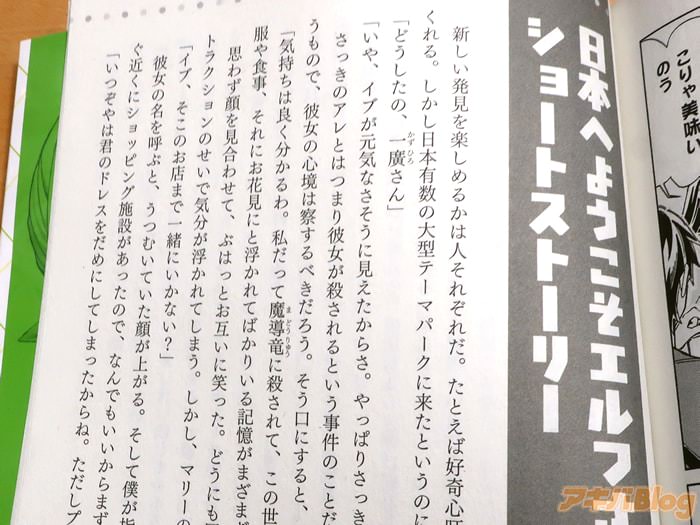 こりゃ美味い
のう
日本へようこそエルフ
ショートストーリー
新しい発見を楽しめるかは人それぞれだ。たとえば好奇心旺
くれる。しかし日本有数の大型テーマパークに来たというのに
「どうしたの、一廣さん」
かずひろ
「いや、イブが元気なさそうに見えたからさ。やっぱりさっき
さっきのアレとはつまり彼女が殺されるという事件のことだ
うもので、彼女の心境は察するべきだろう。そう口にすると、
「気持ちは良く分かるわ。私だって魔導竜に殺されて、この世
まどうりゅう
服や食事、それにお花見にと浮かれてばかりいる記憶がまざまざ
思わず顔を見合わせて、ぶはっとお互いに笑った。どうにも
トラクションのせいで気分が浮かれてしまう。しかし、マリーの
「イブ、そこのお店まで一緒にいかない?」
彼女の名を呼ぶと、うつむいていた顔が上がる。そして僕が指
ぐ近くにショッピング施設があったので、なんでもいいからまず
「いつぞやは君のドレスをだめにしてしまったからね。ただしプ
アキバBlog